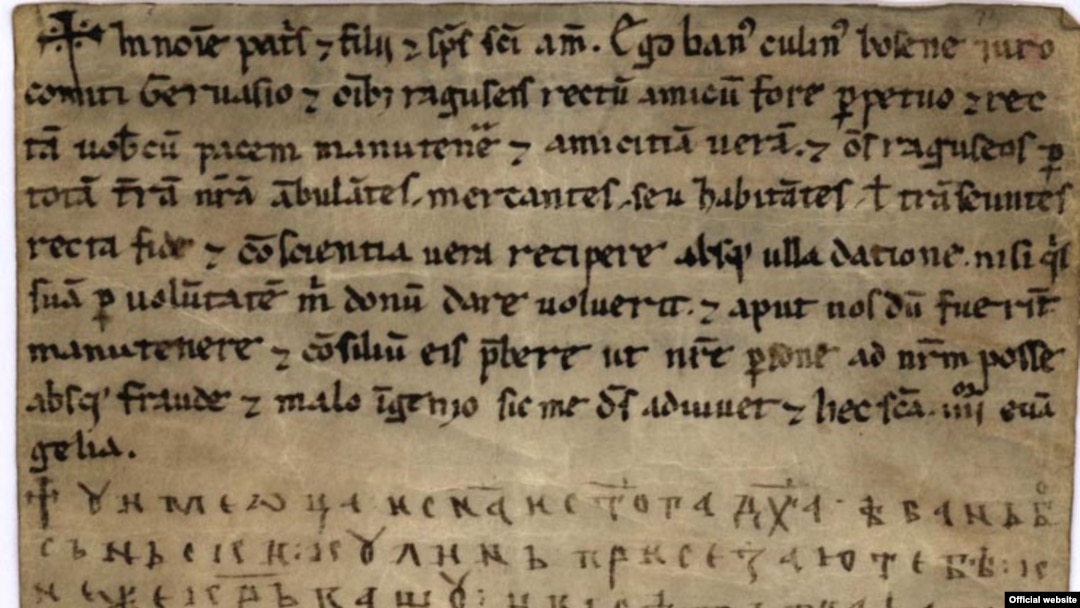 ✝ In noīe pat̄s ⁊ filii ⁊ sp̄s sc̄i am̄. Ego banꝰ culinꝰ bosene iuro
comiti Geruasio ⁊ oīb; raguseis rectū amicū fore ꝑpetuo ⁊ rec
tā uob̄cū pacem manutene ⁊ amicitiā uerā. ⁊ oēs raguseos ꝑ
totā t̄rā nr̄ā ābulātes, mercantes, seu habitātes, ł trāseuntes
recta fide ⁊ cōscientia uera recipere absqꝫ ulla datione. nisi q̄s
suā ꝑ uolūtatē m̄ donū dare uoluerit. ⁊ aput nos dū fuerīt
manutenere ⁊ cōsiliū eis p̄bere ut nr̄e ꝑsone ad nr̄m posse
absqꝫ fraude ⁊ malo īgenio sic me d̄s adiuuet ⁊ hec sc̄a. iiiior euā
gelia.
✝ ꙋ имє ѡца и сн̄а и ст̄ога дх̄а · ѣ банъ бо
сьньски: кꙋлинь присєзаю тєбѣ: к
нєжє кр̄ьвашꙋ:
Official website